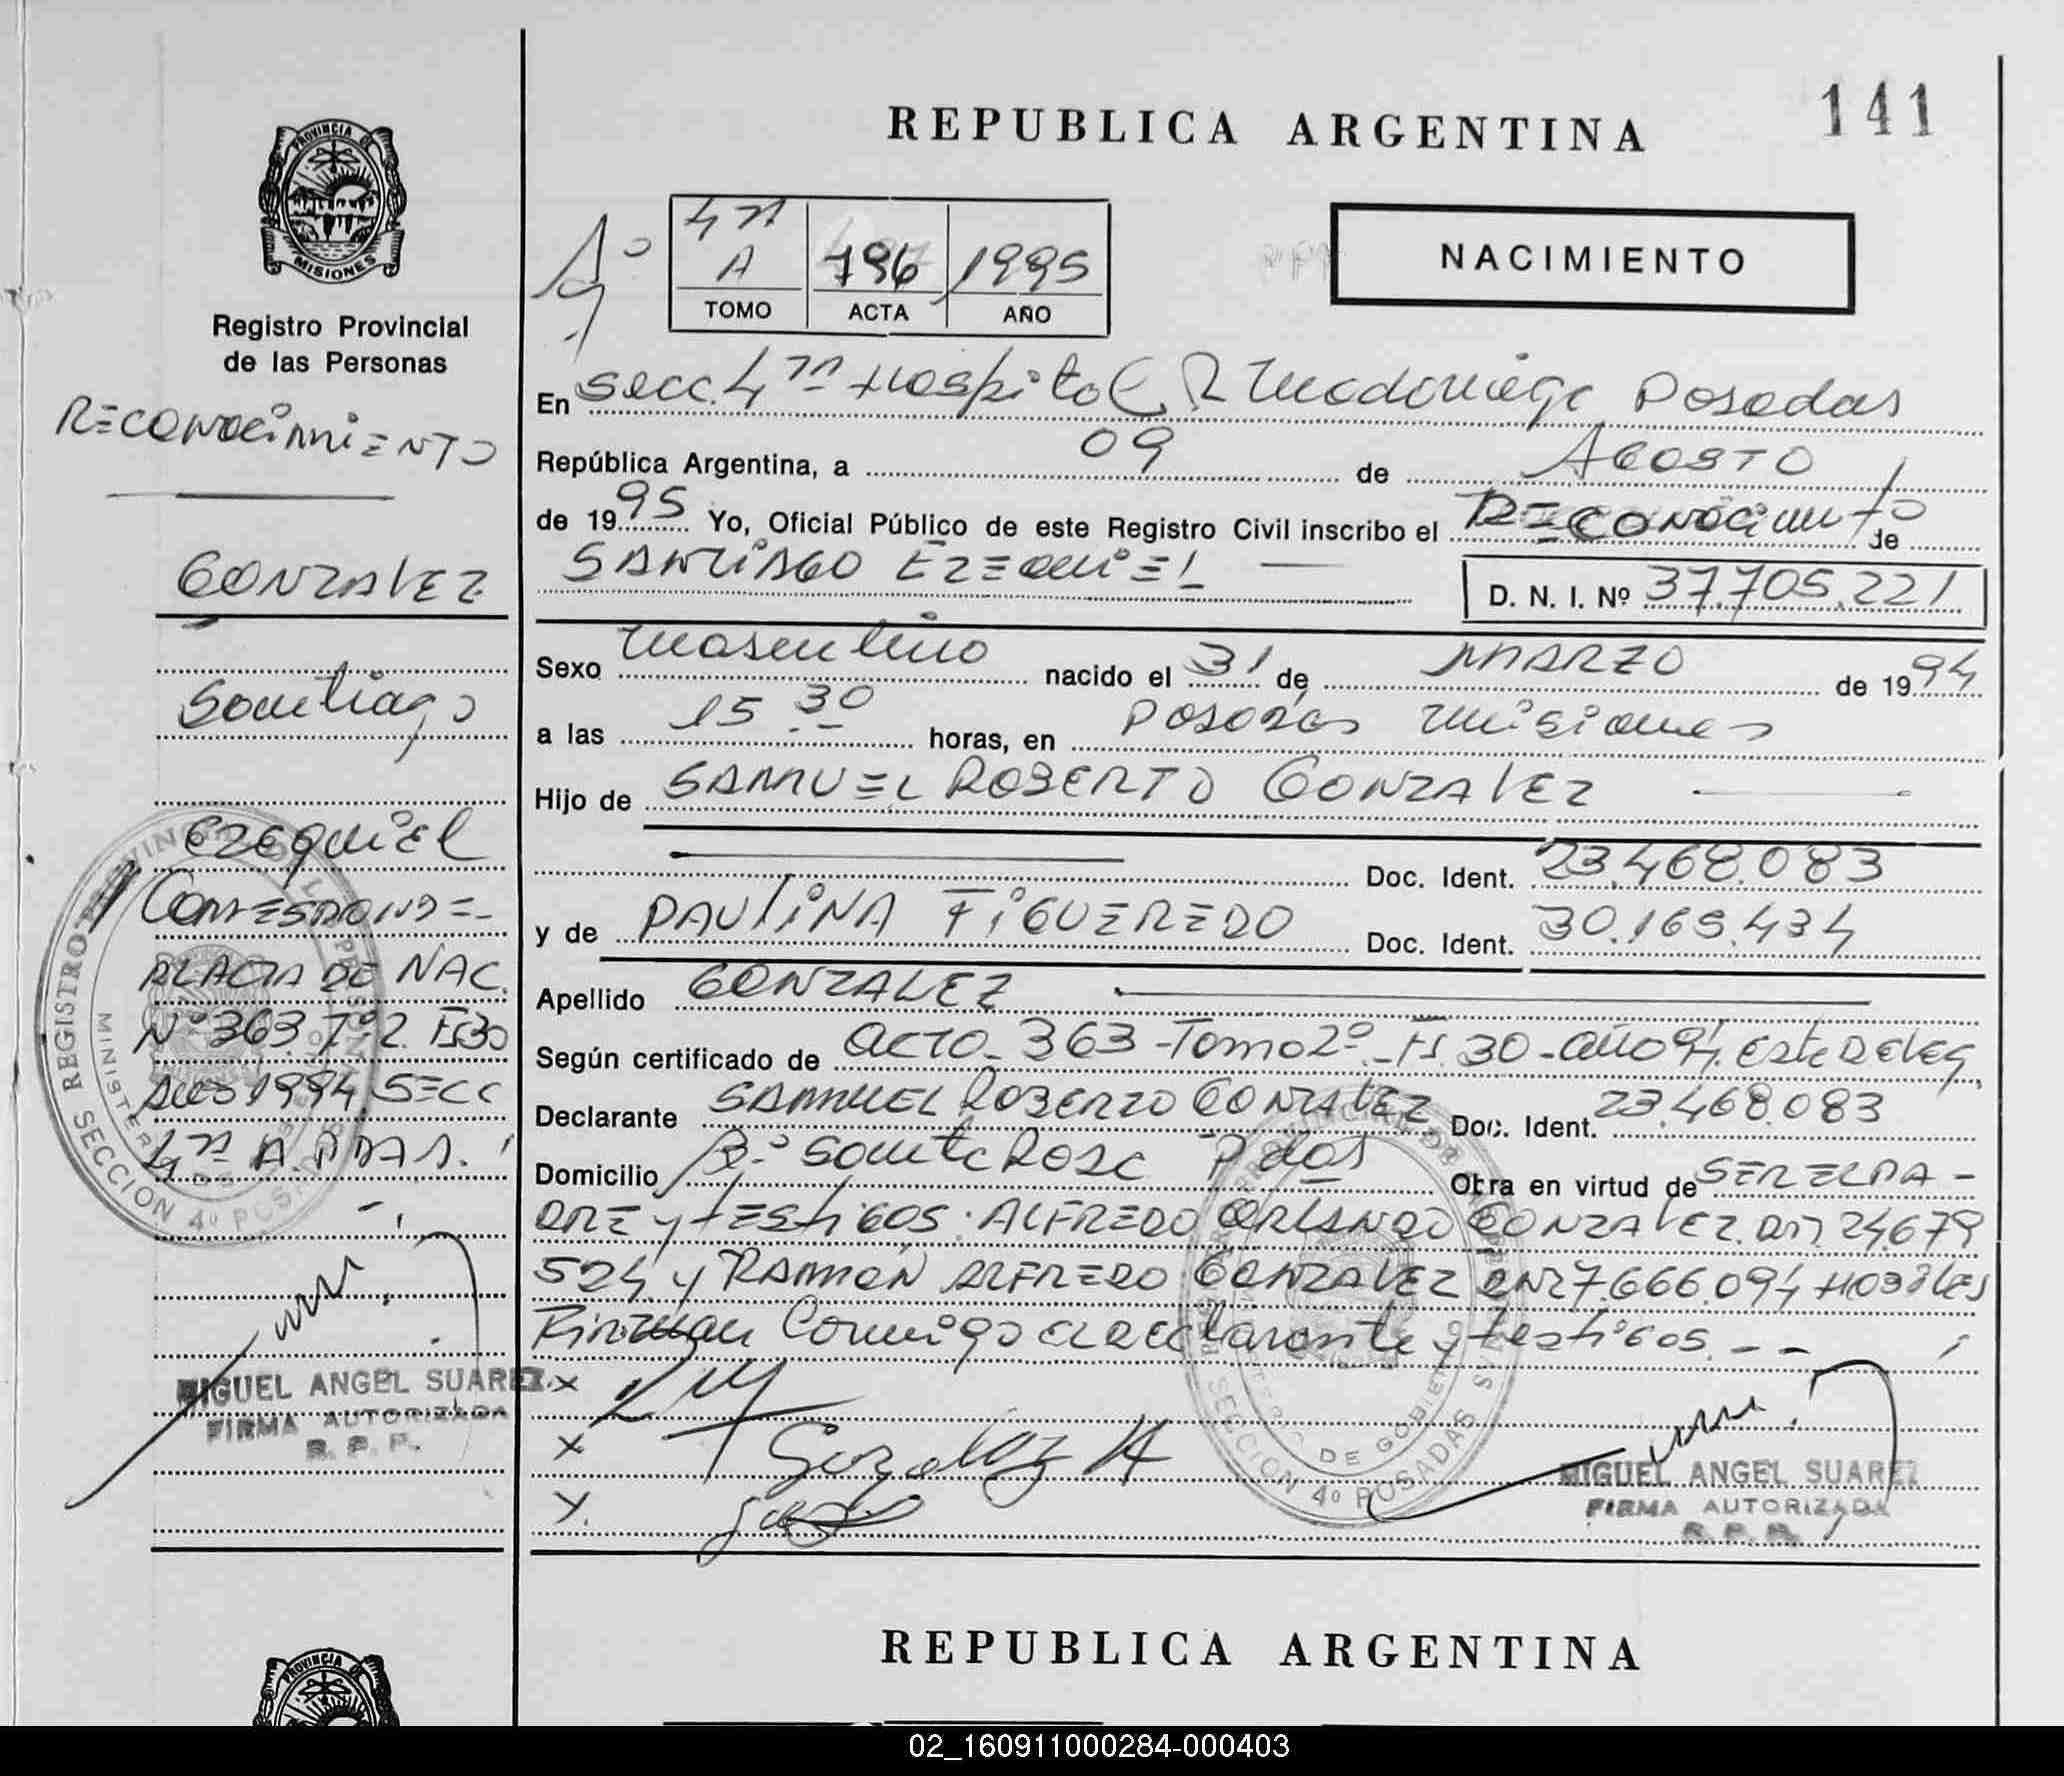 141
REPUBLICA ARGENTINA
PROVINCIA DE
MISIONES
Registro Provincial
de las Personas
RECONOCIMIENTO
GONZALEZ
Santiago
Ezequiel
CORRESPONDE
AL ACTA DE NAC.
Nº 363. Tº 2. Fs 30
AÑO 1994 SECC
4ta A. PDAS.
MIGUEL ANGEL SUAREZ
FIRMA AUTORIZADA
R. P. P.
4ta
A 796 1995
TOMO ACTA AÑO
NACIMIENTO
En Secc. 4ta Hospital R Madariaga Posadas
República Argentina, a 09 de AGOSTO
de 1995 Yo, Oficial Público de este Registro Civil inscribo el RECONOCIMIENTO de
SANTIAGO EZEQUIEL D. N. I. Nº 37.705.221
Sexo Masculino nacido el 31 de MARZO de 1994
a las 15 30 horas, en Posadas Misiones
Hijo de SAMUEL ROBERTO GONZALEZ
Doc. Ident. 23.468.083
y de PAULINA FIGUEREDO Doc. Ident. 30.165.434
Apellido GONZALEZ
Según certificado de acta 363 - Tomo 2º - Fs. 30 - año 94. este Deleg.
Declarante SAMUEL ROBERTO GONZALEZ Doc. Ident. 23.468.083
Domicilio Bº Santa Rosa Pdas Obra en virtud de SER EL PA-
DRE y TESTIGOS: ALFREDO ORLANDO GONZALEZ. DNI 24.679
524 y RAMON ALFREDO GONZALEZ DNI 7.666.094 HABILES
Firman Conmigo el declarante y testigos. - -
x
x Gonzalez A
x.
MIGUEL ANGEL SUAREZ
FIRMA AUTORIZADA
R. P. P.
REGISTRO PROVINCIAL DE LAS PERSONAS
MINISTERIO DE GOBIERNO
SECCION 4º POSADAS
REPUBLICA ARGENTINA
PROVINCIA DE
02_160911000284-000403